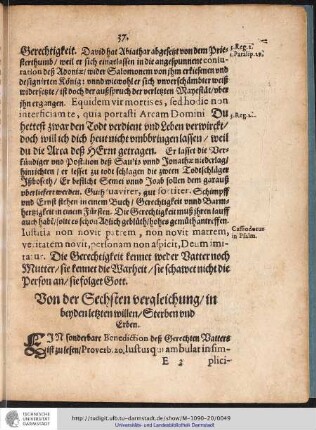 37.
Gerechtigkeit. David hat Abiathar abgesetzt von dem Prie-
sterthumb / weil er sich eingelassen in die angespunnene coniu-
ration deß Adoniæ / wider Salomonem von ihm erkiesenen und
designirten König: unnd wiewohl er sich unverschämbter weiß
widersetzte / ist doch der außspruch der verletzten Mayestät / uber
ihn ergangen. Equidem vir mortis es, sed hodie non
interficiam te, quia portasti Arcam Domini Du
hettest zwar den Todt verdient und Leben verwirckt /
doch will ich dich heut nicht umbbringen lassen / weil
du die Arca deß HErrn getragen. Er lasset die Ver-
kündiger und Postilion deß Sauls unnd Jonathæ niderlag /
hinrichten / er lesset zu todt schlagen die zween Todtschläger
Ißboseth / Er befilcht Semei unnd Joab sollen dem garauß
uberliefert werden. Suaviter, gut fortiter. Schimpff
und Ernst stehen in einem Buch / Gerechtigkeit unnd Barm-
hertzigkeit in einem Fürsten. Die Gerechtigkeit muß ihren lauff
auch habē / solte es schon Adlich geblüth / hohes gemüth antreffen.
Iustitia non novit patrem, non novit matrem,
veritatem novit, personam non aspicit, Deum imi-
tatur. Die Gerechtigkeit kennet weder Vatter noch
Mutter / sie kennet die Warheit / sie schawet nicht die
Person an / sie folget Gott.
3. Reg. 2.
2. Paralip. 19.
3. Reg. 2.
Cassiodorus
in Psalm.
Von der Sechsten vergleichung / in
beyden letzten willen / Sterben und
Erben.
EIN sonderbare Benediction deß Gerechten Vatters
ist zu lesen / Proverb. 20. Iustus qui ambulat in sim-
E 2 plici-
TECHNISCHE
UNIVERSITÄT
DARMSTADT
http://tudigit.ulb.tu-darmstadt.de/show/M-1090-20/0049
Universitäts- und Landesbibliothek Darmstadt